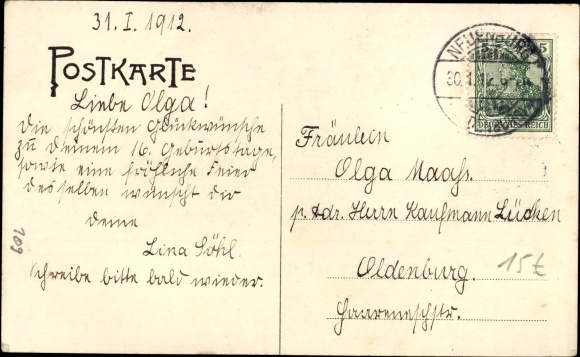 31. I. 1912.
POSTKARTE
Liebe Olga!
Die schönsten Glückwünsche
zu deinem 16. Geburtstage,
sowie eine fröhliche Feier
desselben wünscht dir
deine
Lina
Schreibe bitte bald wieder.
709
NEUENBURG
30.1.12
DEUTSCHES REICH
5
Fräulein
Olga Maass.
p. Adr. Herrn Kaufmann Lücken
Oldenburg.
15€
Haareneschstr.